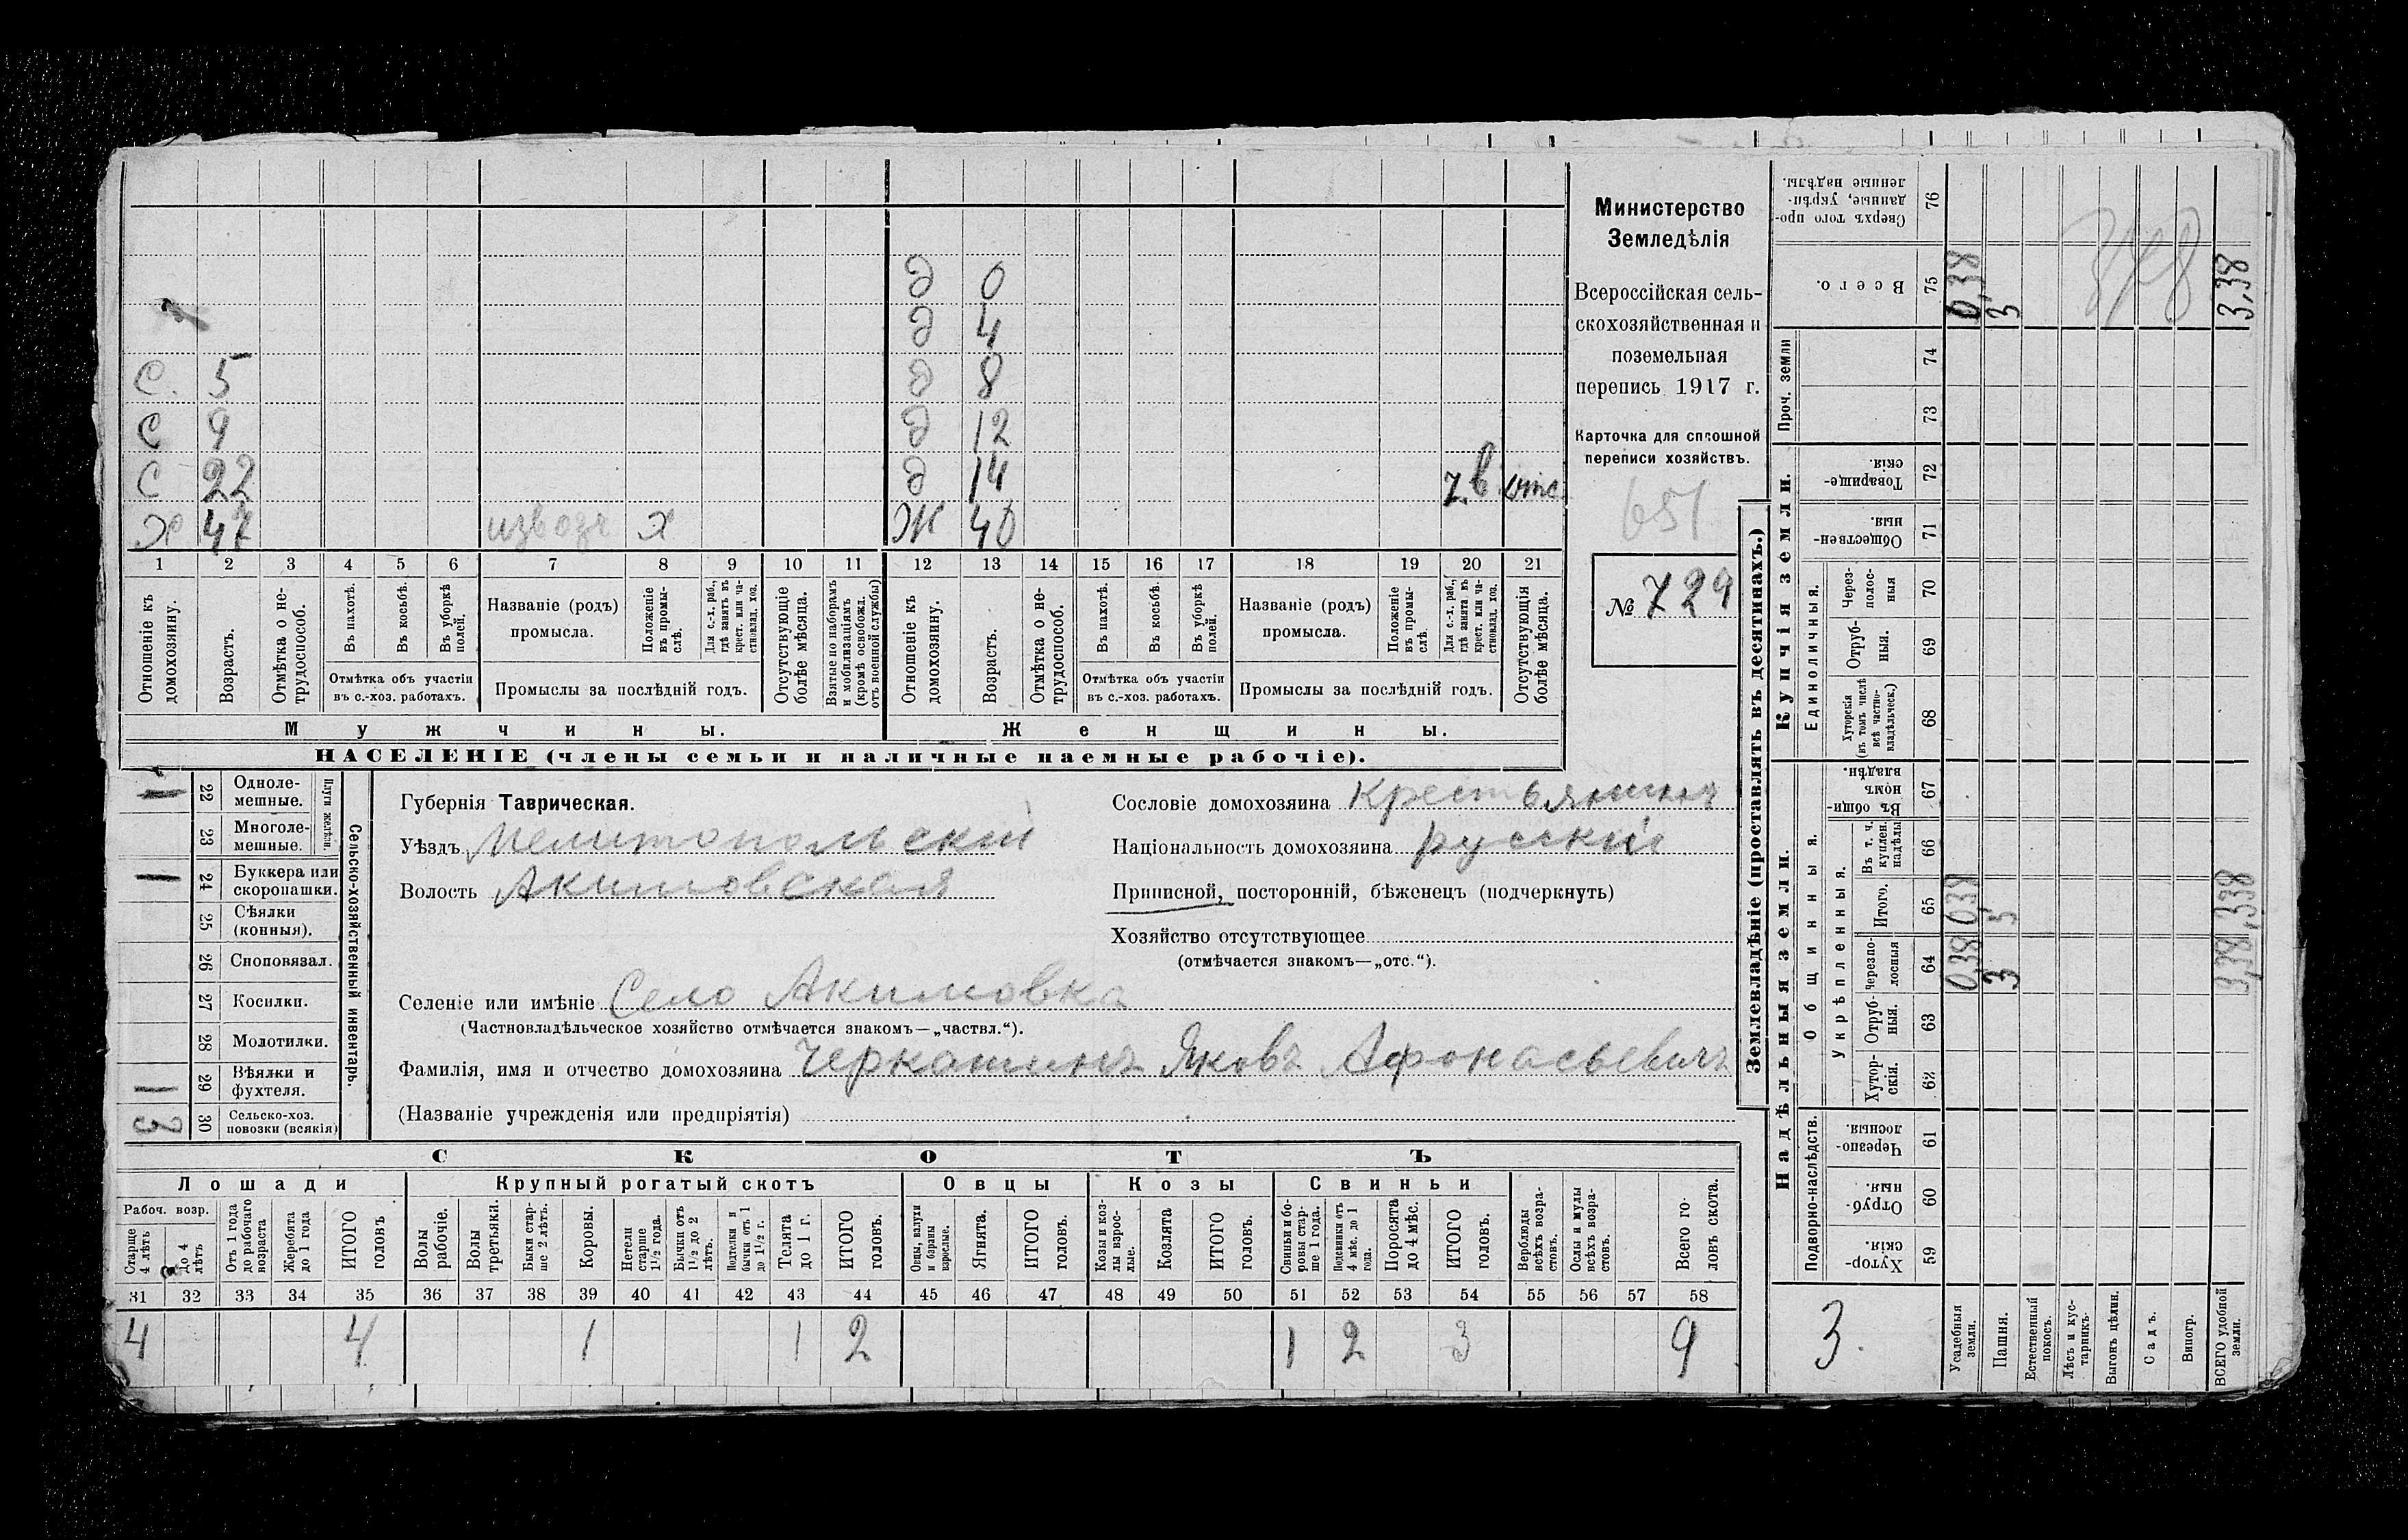 Министерство
Земледѣлія
Всероссійская сель-
скохозяйственная и
поземельная
перепись 1917 г.
Карточка для сплошной
переписи хозяйствъ.
651
№ 729
д 0
д 4
С. 5 д 8
С 9 д 12
С 22 д 14
Х 47 извозч х Ж 40 отс.
1 2 3 4 5 6 7 8 9 10 11 12 13 14 15 16 17 18 19 20 21
Отношеніе къ домохозяину.
Возрастъ.
Отмѣтка о не-трудоспособ.
Въ пахотѣ.
Въ косьбѣ.
Въ уборкѣ полей.
Отмѣтка объ участіи въ с.-хоз. работахъ.
Названіе (родъ) промысла.
Положеніе въ промы-слѣ.
Для с.-х. раб., гдѣ занятъ въ крест. или ча-стновлад. хоз.
Промыслы за послѣдній годъ.
Отсутствующіе болѣе мѣсяца.
Взятые по наборамъ и мобилизаціямъ (кромѣ освобожд. отъ военной службы)
Отношеніе къ домохозяину.
Возрастъ.
Отмѣтка о не-трудоспособ.
Въ пахотѣ.
Въ косьбѣ.
Въ уборкѣ полей.
Отмѣтка объ участіи въ с.-хоз. работахъ.
Названіе (родъ) промысла.
Положеніе въ промы-слѣ.
Для с.-х. раб., гдѣ занята въ крест. или ча-стновлад. хоз.
Промыслы за послѣдній годъ.
Отсутствующія болѣе мѣсяца.
Мужчины. Женщины.
НАСЕЛЕНІЕ (члены семьи и наличные наемные рабочіе).
Сельско-хозяйственный инвентарь.
Плуги желѣзн.
1 22 Одноле-мешные.
23 Многоле-мешные.
1 24 Буккера или скоропашки.
25 Сѣялки (конныя).
26 Сноповязал.
27 Косилки.
28 Молотилки.
1 29 Вѣялки и фухтеля.
3 30 Сельско-хоз. повозки (всякія)
Губернія Таврическая.
Уѣздъ Мелитопольскій
Волость Акимовская
Сословіе домохозяина Крестьянинъ
Національность домохозяина русскій
Приписной, посторонній, бѣженецъ (подчеркнуть)
Хозяйство отсутствующее
(отмѣчается знакомъ—„отс.“).
Селеніе или имѣніе Село Акимовка
(Частновладѣльческое хозяйство отмѣчается знакомъ—„частвл.“).
Фамилія, имя и отчество домохозяина Черкашинъ Яковъ Афонасьевичъ
(Названіе учрежденія или предпріятія)
СКОТЪ
Лошади Крупный рогатый скотъ Овцы Козы Свиньи
Рабоч. возр.
Старше 4 лѣтъ
До 4 лѣтъ
Отъ 1 года до рабочаго возраста
Жеребята до 1 года
ИТОГО головъ
Волы рабочіе.
Волы третьяки.
Быки стар-ше 2 лѣтъ.
Коровы.
Нетели старше 1½ года.
Бычки отъ 1½ до 2 лѣтъ.
Подтелки и бычки отъ 1 до 1½ г.
Телята до 1 г.
ИТОГО головъ.
Овцы, валухи и бараны взрослые.
Ягнята.
ИТОГО головъ.
Козы и коз-лы взрос-лые.
Козлята
ИТОГО головъ.
Свиньи и бо-ровы стар-ше 1 года.
Подсвинки отъ 4 мѣс. до 1 года.
Поросята до 4 мѣс.
ИТОГО головъ.
Верблюды всѣхъ возра-стовъ.
Ослы и мулы всѣхъ возра-стовъ.
Всего го-ловъ скота.
31 32 33 34 35 36 37 38 39 40 41 42 43 44 45 46 47 48 49 50 51 52 53 54 55 56 57 58
4 4 1 1 2 1 2 3 9
Землевладѣніе (проставлять въ десятинахъ.)
Надѣльныя земли. Купчія земли.
Подворно-наслѣдств.
Общинныя.
Укрѣпленныя.
Единоличныя.
Проч. земли
Хутор-скія. 59
Отруб-ныя. 60
Черезпо-лосныя. 61
Хутор-скія. 62
Отруб-ныя. 63
Черезпо-лосныя 64 0,38 3 3,38
Итого. 65 0,38 3 3,38
Въ т. ч. куплен. надѣлы 66
Въ общи-номъ владѣн. 67
Хуторскія (въ томъ числѣ всѣ частно-владѣльческ.) 68
Отруб-ныя. 69
Через-полос-ныя 70
Обществен-ныя. 71
Товарище-скія. 72
73
74
Всего. 75 0,38 3 3,38
Сверхъ того про-данные, укрѣп-ленные надѣлы. 76
378
3.
Усадебныя земли.
Пашня.
Естественный покосъ.
Лѣсъ и кус-тарникъ.
Выгонъ цѣлин.
Садъ.
Виногр.
ВСЕГО удобной земли.